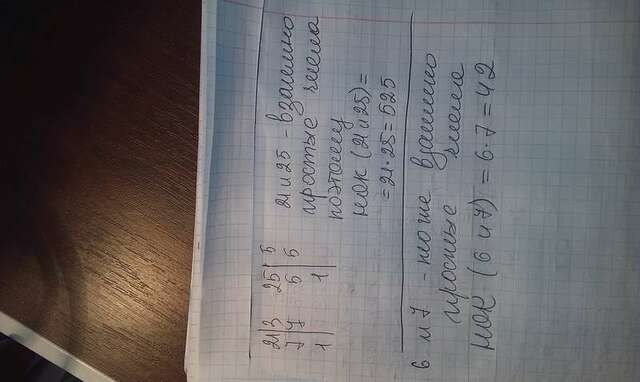 21|3 25|5 21 и 25 - взаимно
7|7 5|5 простые числа
1| 1| поэтому
НОК (21 и 25) =
= 21·25 = 525
6 и 7 - тоже взаимно
простые числа
НОК (6 и 7) = 6·7 = 42